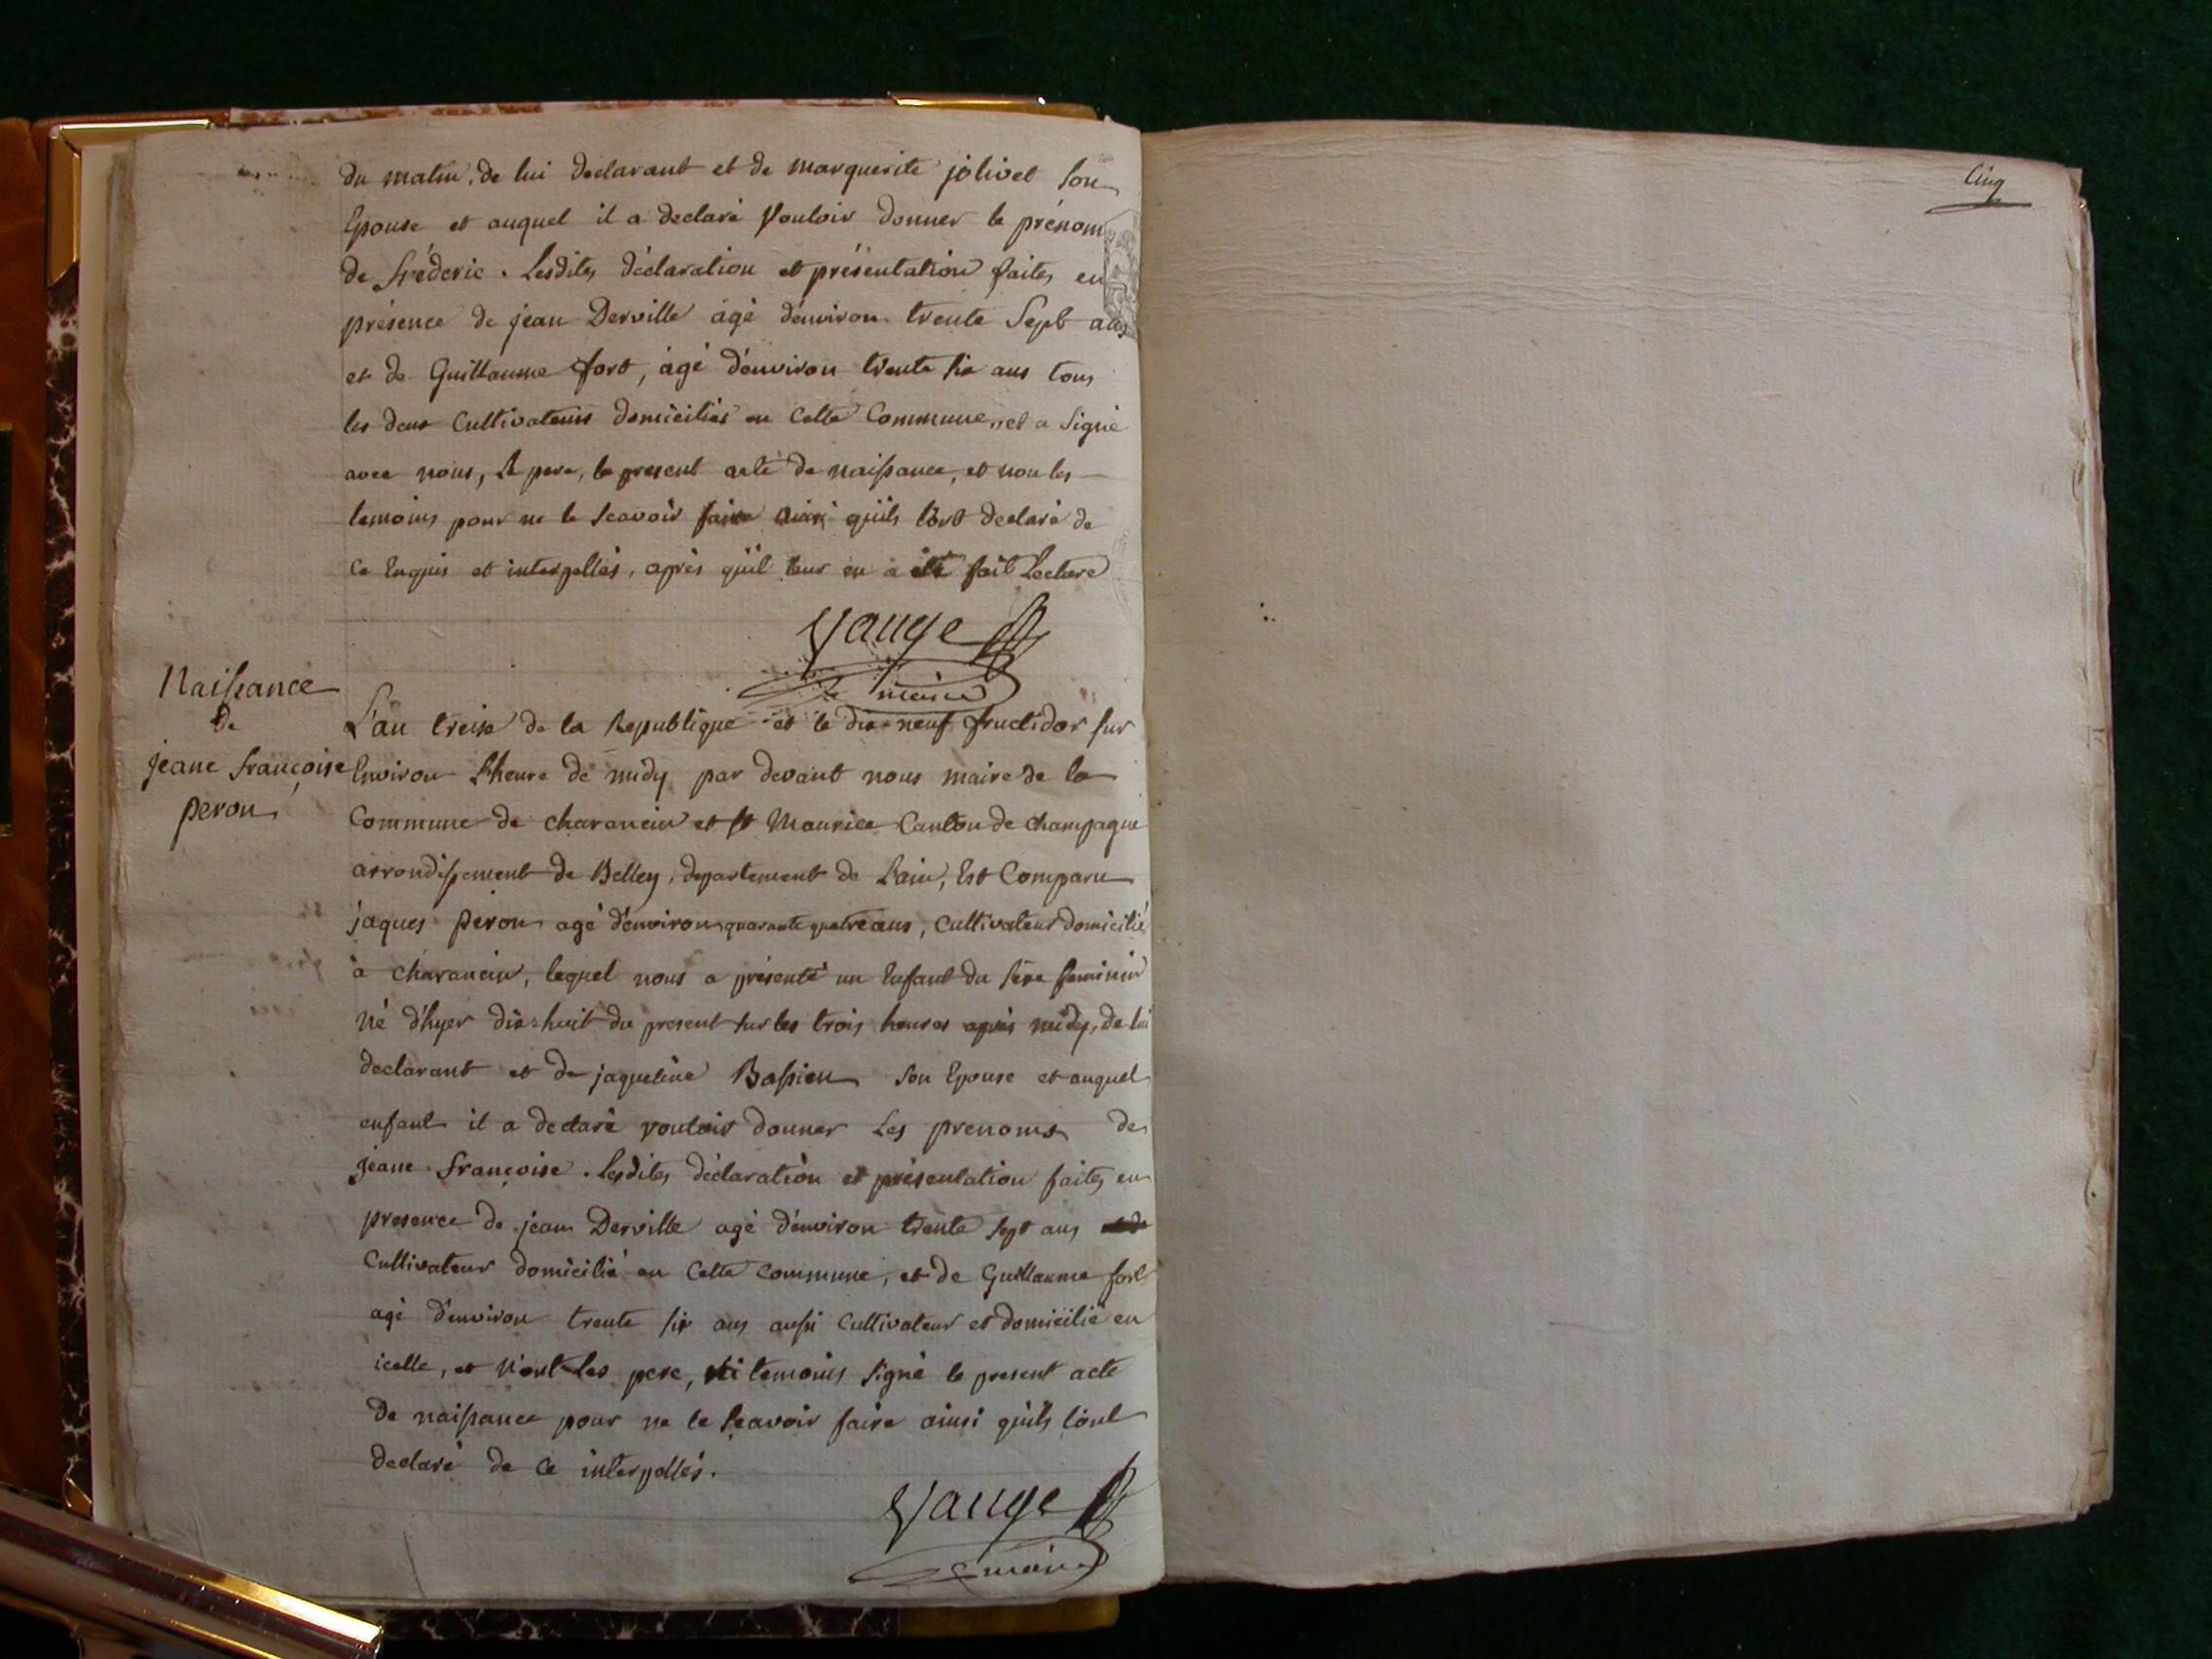 Cinq
du matin, de lui declarant et de marguerite jolivet son
Epouse et auquel il a declaré Vouloir donner le prénom
de fréderic. Lesdites déclaration et présentation faites en
présence de jean Derville agé d'environ trente Sept ans
et de Guillaume fort, agé d'environ trente six ans tous
les deux Cultivateurs domiciliés en Cette Commune, et a Signé
avec nous, le pere, le present acte de naissance, et non les
temoins pour ne le scavoir faire ainsi qu'ils l'ont declaré de
ce Enquis et interpellés, après qu'il leur en a été fait Lecture
Vauge
maire
Naissance
de
jeane françoise
peron
L'an treise de la Republique et le dix-neuf fructidor sur
Environ l'heure de midy par devant nous maire de la
Commune de charancin et st Maurice Canton de champagne
arrondissement de Belley, departement de L'ain, Est Comparu
jaques peron agé d'environ quarante quatre ans, Cultivateur domicilié
à charancin, lequel nous a présenté un Enfant du sexe feminin
né d'hyer dix-huit du present sur les trois heures après midy, de lui
declarant et de jaqueline Bassieu son Epouse et auquel
enfant il a declaré vouloir donner Les prenoms de
jeane françoise. Lesdites déclaration et présentation faites en
presence de jean Derville agé d'environ trente sept ans
Cultivateur domicilié en Cette Commune, et de Guillaume fort
agé d'environ trente six ans aussi Cultivateur et domicilié en
icelle, et n'ont les pere, ni temoins signé le present acte
de naissance pour ne le scavoir faire ainsi qu'ils l'ont
declaré de ce interpellés.
Vauge
maire